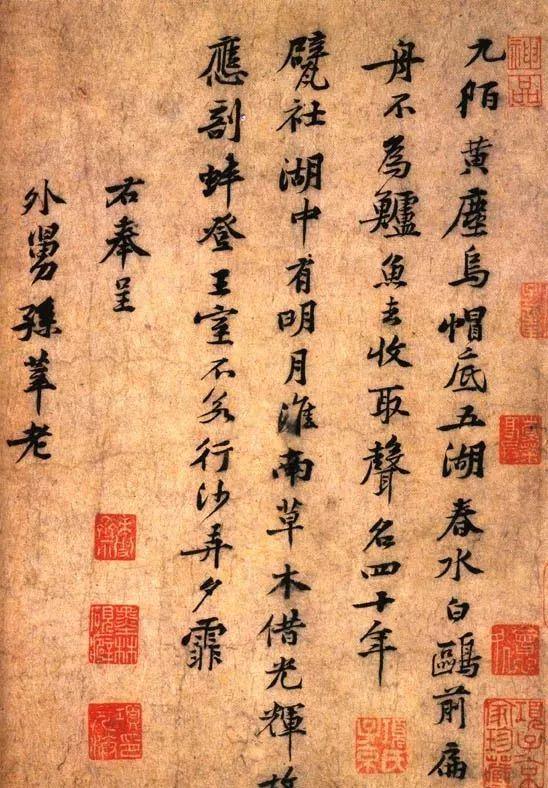 九陌黃塵烏帽底五湖春水白鷗前扁
舟不為鱸魚去收取聲名四十年
甓社湖中有明月淮南草木借光輝故
應剖蚌登王室不若行沙弄夕霏
右奉呈
外舅孫莘老
神品
項子京家珍藏